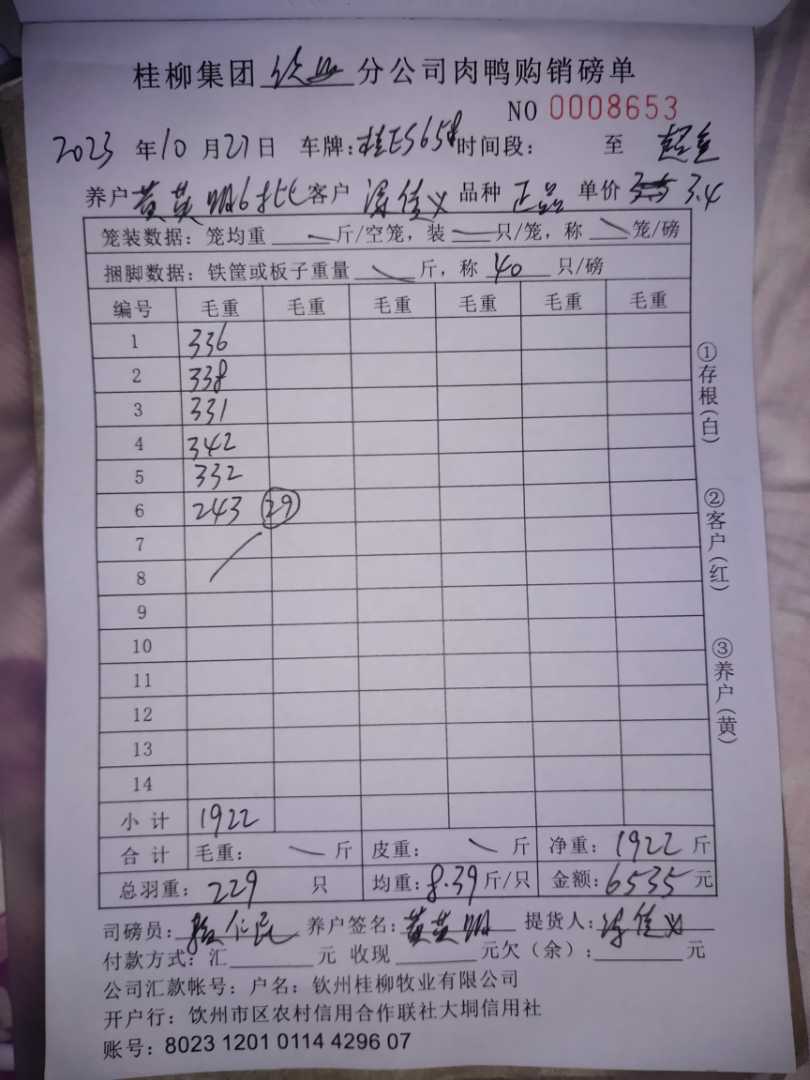 桂柳集团 分公司肉鸭购销磅单
NO 0008653
2023 年 10 月 27 日 车牌：桂E5658 时间段： 至
养户 黄英明6批 客户 佳义 品种 正品 单价 3.4
笼装数据：笼均重 斤/空笼，装 只/笼，称 笼/磅
捆脚数据：铁筐或板子重量 斤，称 40 只/磅
编号 毛重 毛重 毛重 毛重 毛重 毛重
1 336
2 338
3 331
4 342
5 332
6 243 29
7
8
9
10
11
12
13
14
小计 1922
合计 毛重： 斤 皮重： 斤 净重：1922 斤
总羽重：229 只 均重：8.39 斤/只 金额：6535 元
司磅员： 养户签名：黄英明 提货人： 佳义
付款方式：汇 元 收现 元欠（余）： 元
公司汇款帐号：户名：钦州桂柳牧业有限公司
开户行：饮州市区农村信用合作联社大垌信用社
账号：8023 1201 0114 4296 07
①存根(白)
②客户(红)
③养户(黄)